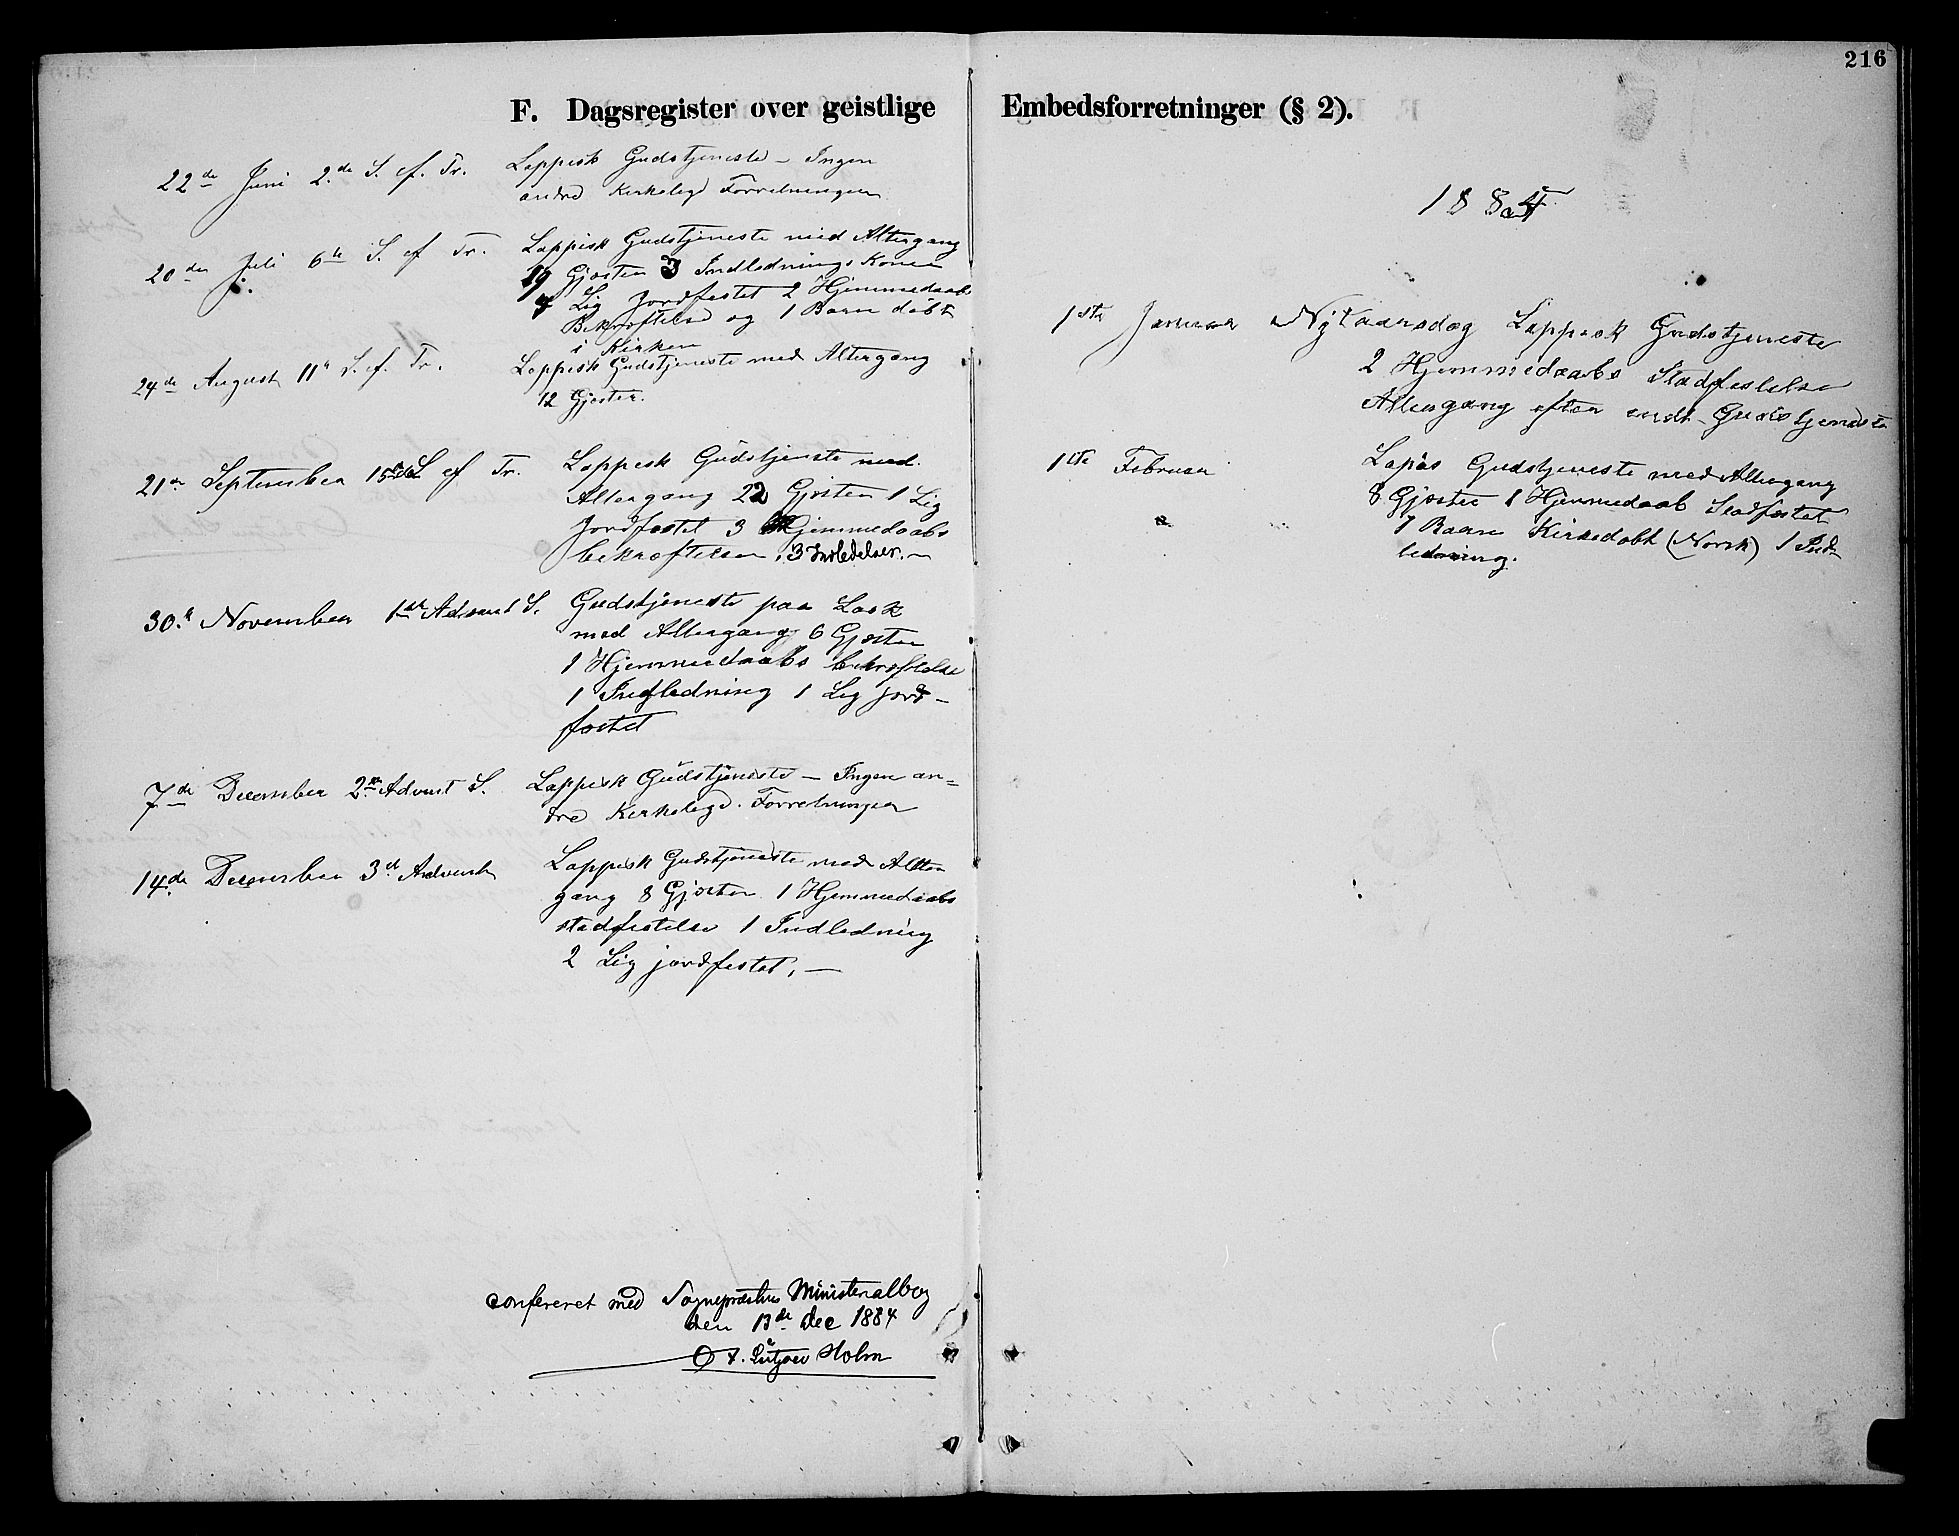 216
F. Dagsregister over geistlige Embedsforretninger (§ 2).
22de Juni 2.de S. ef. Tr. Lappisk Gudstjeneste – Ingen
andre Kirkelige Forretninger
20de Juli 6te S. ef Tr. Lappisk Gudstjeneste med Altergang
19 Gjæster 3 Indlednings Koner
4 Lig Jordfæstet 2 Hjemmedaabs
Bekræftelse og 1 Barn döbt
i Kirken
24de August 11te S. ef. Tr. Lappisk Gudstjeneste med Altergang
12 Gjester.
21de September 15de S ef Tr. Lappisk Gudstjeneste med
Altergang 22 Gjæster 1 Lig
Jordfæstet 3 Hjemmedaabs
bekræftelser. 3 Indledelser. –
30te November 1ste Advent S. Gudstjeneste paa Lapsk
med Altergang 6 Gjæster
1 Hjemmedaabs bekræftelse
1 Indledning 1 Lig jord–
fæstet
7de December 2den Advent S. Lappisk Gudstjeneste – Ingen an=
dre Kirkelige Forretninger
14de December 3die Advent Lappisk Gudstjeneste med Alter
gang 8 Gjæster 1 Hjemmedaabs
stadfæstelse 1 Indledning
2 Lig jordfæstet. –
confereret med Sognepræstens Ministerialbog
den 13de Dec 1884
Holm
188
1ste Januar Nytaarsdag Lappisk Gudstjeneste
2 Hjemmedaabs Stadfæstelse
Altergang efter endt Gudstjeneste
1ste Februar Lapis Gudstjeneste med Altergang
8 Gjæster 1 Hjemmedaab Stadfæstet
1 Barn Kirkedöbt (Norsk) 1 Ind–
ledning.